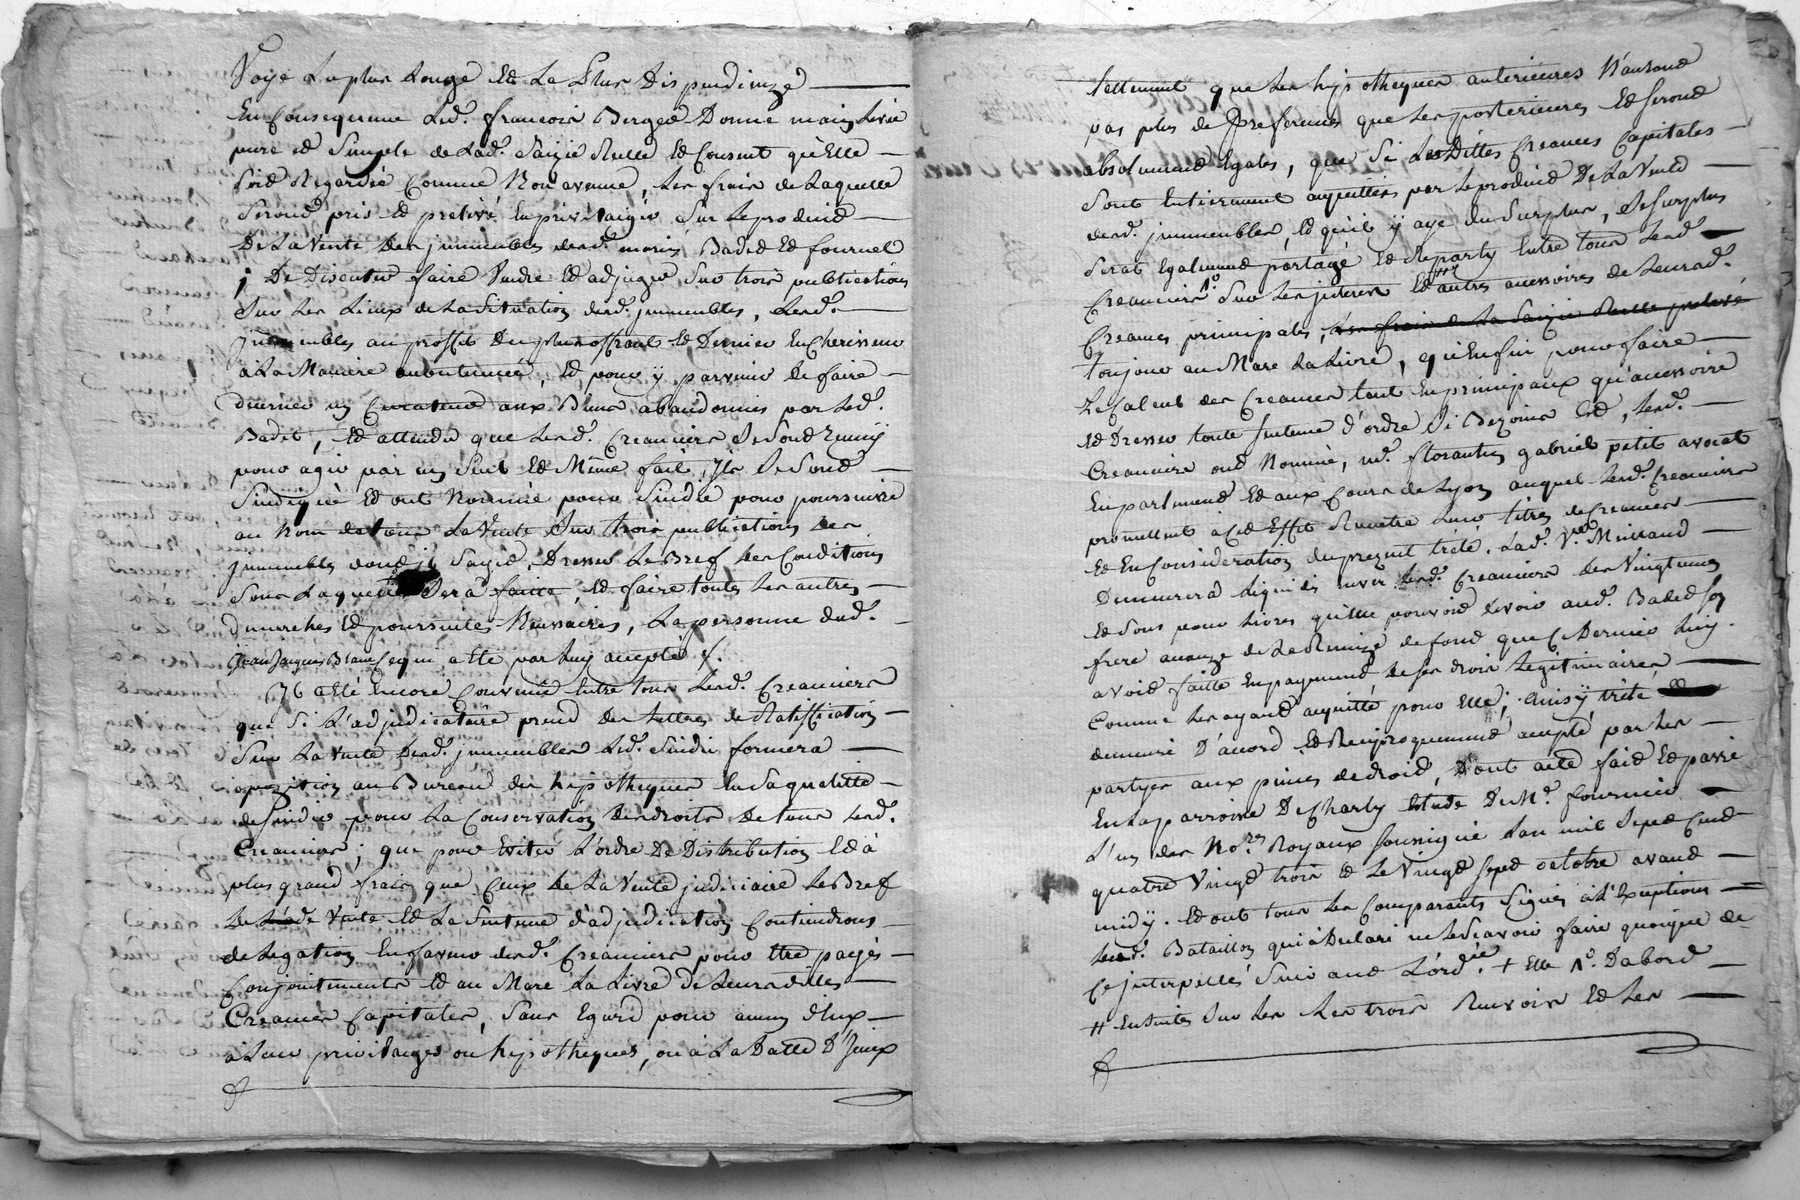 Voye La plus Longe Et La Plus Dispendieuze
En Consequence Led. francois Berged Donne main Levée
pure et Simple de Lad. Saizie Reelle Et Consent qu'Elle
Soit Regardée Comme Non avenue, Les frais de Laquelle
Seront pris Et prelevé En privilaigés Sur Le produit
De La Vente des jmmeubles desd. mariés Badet Et fournel
De Discuter faire Vendre Et adjuger Sur trois publications
Sur Les Lieux de La Situation desd. jmmeubles, Lesd.
jmmeubles au proffit Du plus offrant Et Dernier Encherisseur
à La Maniere accoutumée, Et pour ÿ parvenir De faire
decerner un Curateur aux Biens abandonnés par Led.
Badet, Et attendu que Lesd. Creanciers Se Sont Reunÿ
pour agir par un Seul Et Même fait, Ils Se Sont
Sindiqué Et ont Nommée pour Sindic pour poursuivre
au Nom de tous La Vente Sur trois publications des
jmmeubles dont il Sagit, Dresser Le Bref des Conditions
Sous Laquelle Sera faite, Et faire toutes Les autres
demarches Et poursuites Necessaires, La personne dud.
Jean Jacques Blanc Ce qui a Eté par Luy accepté /.
Il a Eté Encore Convenue Entre tous Lesd. Creanciers
que Si L'adjudicataire prend des Lettres de Ratiffication
Sur La Vente Desd. jmmeubles Led. Sindic formera
opozition au Bureau des hipotheques En Sa qualitté
de Sindic pour La Conservation des droits de tous Lesd.
Creanciers; que pour Eviter L'ordre De Distribution Et à
plus grand frais que Ceux de La Vente judiciaire Le Bref
de Vente Et La Sentence d'adjudication Contiendrons
delegation En faveur desd. Creanciers pour Etre payés
Conjointements Et au Marc La Livre de Leursdittes
Creances Capitales, Sans Egard pour aucun d'Eux
à Leur privilaiges ou hipotheques, ou à La Datte D'Iceux
tellement que Les hipotheques anterieures N'auront
pas plus de Preference que Les posterieures Et Seront
absolument Egales, que Si LesDittes Creances Capitales
Sont Entierement acquittées par Le produit De La Vente
desd. jmmeubles, Et qu'il ÿ aye du Surplus, Le Surplus
Serat Egalement partagé Et Reparty Entre tous Lesd.
Creanciers Sur Les jnterets Et autres accessoires de Leursd.
Creances principales, Les frais de La Saizie Reelle prelevé
toujour au Marc La Livre, qu'Enfin pour faire
Le Calcul des Creances tant En principaux qu'accessoire
Et Dresser toute Sentence d'ordre Si Bezoins Est, Lesd.
Creanciers ont Nommé, me. florantin gabriel petit avocat
En parlement Et aux Cours de Lyon auquel Lesd. Creanciers
promettent à Cet Effet Remettre Leur titres de Creances
Et En Consideration du prezent treté, Lad. Ve. Missaud
Demeurera Liquidés Envers Lesd. Creanciers des Vingt une
Et Sous pour Livres qu'Elle pouvoit devoir aud. Badet Son
frere a cauze de La Remize de fond que Ce Dernier Luy
avoit faitte En payement de Ses droits Legitimaires
Comme Les ayant acquitté pour Elle; Ainsÿ trété
demeuré D'accord Et Reciproquement accepté par Les
partyes aux peines de droit, Dont acte fait Et passé
En La parroisse De Charly Etude De Me. fournier
L'un des Nores. Royaux Soussigné L'an mil Sept Cent
quatre Vingt trois & Le Vingt Sept octobre avant
midÿ. Et ont tous Les Comparants Signés à L'Exception
dud. Bataillon qui a Declaré ne Le Sçavoir faire quoique de
Ce jnterpellés Suivant L'ordce. + Elle 1o. Dabord
# Ensuite Sur Les Les trois Renvois Et Les